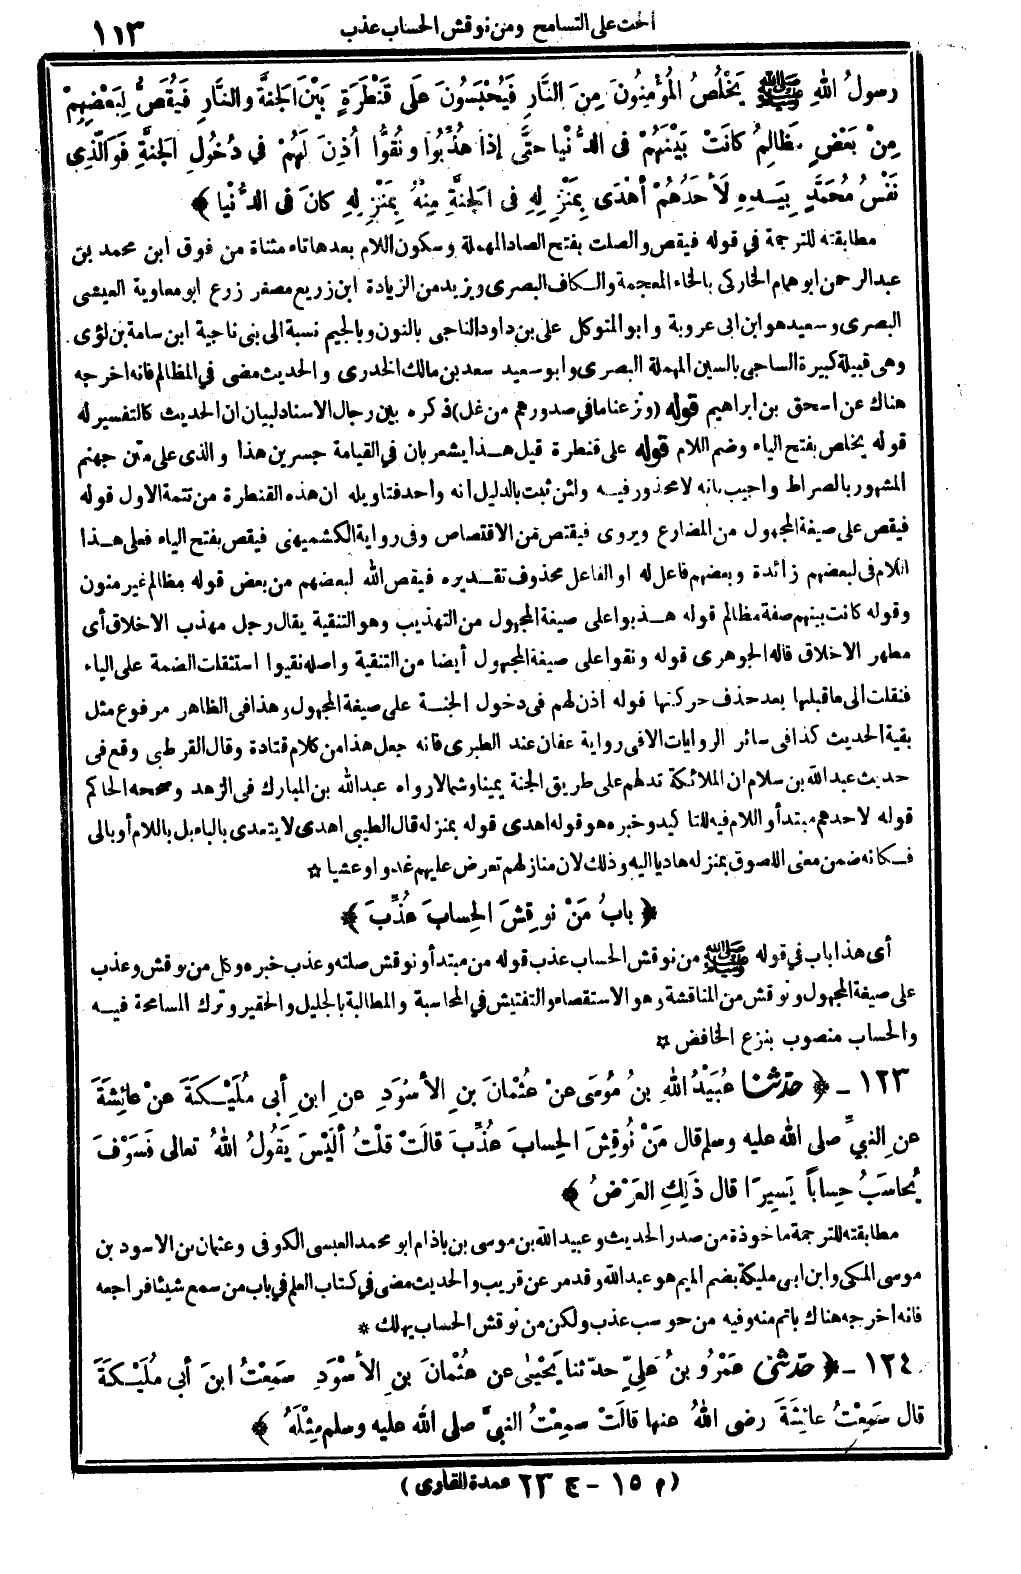 الحث على التسامح ومن نوقش الحساب عذب ١١٣
رسولُ اللهِ ﷺ يَخْلُصُ المُؤْمِنُونَ مِنَ النَّارِ فَيُحْبَسُونَ عَلَى قَنْطَرَةٍ بَيْنَ الجَنَّةِ والنَّارِ فَيُقَصُّ لِبَعْضِهِمْ
مِنْ بَعْضٍ مَظالِمُ كانَتْ بَيْنَهُمْ فى الدُّنْيا حتَّى إذا هُذِّبُوا ونُقُّوا أُذِنَ لَهُمْ في دُخُولِ الجنةِ فَوَ الَّذِى
نَفْسُ مُحَمَّدٍ بِيَدِهِ لَأَحَدُهُمْ أهْدَى بِمَنْزِلِهِ فى الجنَّةِ مِنْهُ بِمَنْزِلِهِ كانَ فى الدُّنْيا ﴾
مطابقته للترجمة في قوله فيقص والصلت بفتح الصاد المهملة وسكون اللام بعدها تاء مثناة من فوق ابن محمد بن
عبد الرحمن ابو همام الخاركى بالخاء المعجمة والكاف البصرى ويزيد من الزيادة ابن زريع مصغر زرع ابو معاوية العيشى
البصرى وسعيد هو ابن ابى عروبة وابو المتوكل على بن داود الناجى بالنون وبالجيم نسبة الى بنى ناجية ابن سامة بن لؤى
وهى قبيلة كبيرة الساجى بالسين المهملة البصرى وابو سعيد سعد بن مالك الخدرى والحديث مضى في المظالم فانه اخرجه
هناك عن اسحق بن ابراهيم قوله (ونزعنا ما في صدورهم من غل) ذكره بين رجال الاسناد لبيان ان الحديث كالتفسير له
قوله يخلص بفتح الياء وضم اللام قوله على قنطرة قيل هذا يشعر بان في القيامة جسرين هذا والذى على متن جهنم
المشهور بالصراط واجيب بانه لا محذور فيه ولئن ثبت بالدليل انه واحد فتاويله ان هذه القنطرة من تتمة الاول قوله
فيقص على صيغة المجهول من المضارع ويروى فيقتص من الاقتصاص وفى رواية الكشميهنى فيقص بفتح الياء فعلى هذا
اللام فى لبعضهم زائدة وبعضهم فاعل له او الفاعل محذوف تقديره فيقص الله لبعضهم من بعض قوله مظالم غير منون
وقوله كانت بينهم صفة مظالم قوله هذبوا على صيغة المجهول من التهذيب وهو التنقية يقال رجل مهذب الاخلاق أى
مطهر الاخلاق قاله الجوهرى قوله ونقوا على صيغة المجهول أيضا من التنقية واصله نقيوا استثقلت الضمة على الياء
فنقلت الى ما قبلها بعد حذف حركتها قوله اذن لهم فى دخول الجنة على صيغة المجهول وهذا فى الظاهر مرفوع مثل
بقية الحديث كذا فى سائر الروايات الا فى رواية عفان عند الطبرى فانه جعل هذا من كلام قتادة وقال القرطبى وقع فى
حديث عبد الله بن سلام ان الملائكة تدلهم على طريق الجنة يمينا وشمالا رواه عبد الله بن المبارك فى الزهد وصححه الحاكم
قوله لاحدهم مبتدأ واللام فيه للتاكيد وخبره هو قوله اهدى قوله بمنزله قال الطيبى اهدى لا يتعدى بالباء بل باللام أو بالى
فكانه ضمن معنى اللصوق بمنزله هاديا اليه وذلك لان منازلهم تعرض عليهم غدوا وعشيا ☆
﴿ بابُ مَنْ نوقِشَ الحِسابَ عُذِّبَ ﴾
أى هذا باب في قوله ﷺ من نوقش الحساب عذب قوله من مبتدأ ونوقش صلته وعذب خبره وكل من نوقش وعذب
على صيغة المجهول ونوقش من المناقشة وهو الاستقصاء والتفتيش في المحاسبة والمطالبة بالجليل والحقير وترك المسامحة فيه
والحساب منصوب بنزع الخافض ☆
١٢٣ ـ ﴿ حدّثنا عُبَيْدُ اللهِ بنُ مُوسَى عنْ عُثْمانَ بنِ الأسْوَدِ عنِ ابنِ أبى مُلَيْكَةَ عنْ عائِشَةَ
عنِ النبيِّ صلى الله عليه وسلم قال مَنْ نُوقِشَ الحِسابَ عُذِّبَ قالَتْ قلْتُ ألَيْسَ يَقُولُ اللهُ تعالى فَسَوْفَ
يُحاسَبُ حِساباً يَسِيرًا قال ذَلِكِ العَرْضُ ﴾
مطابقته للترجمة ماخوذة من صدر الحديث وعبيد الله بن موسى بن باذام ابو محمد العبسى الكوفى وعثمان بن الاسود بن
موسى المكى وابن ابى مليكة بضم الميم هو عبد الله وقد مر عن قريب والحديث مضى في كتاب العلم في باب من سمع شيئا فراجعه
فانه اخرجه هناك باتم منه وفيه من حوسب عذب ولكن من نوقش الحساب يهلك *
١٢٤ ـ ﴿ حدّثنى عَمْرُو بنُ عَلِيٍّ حدّثنا يَحْيَى عن عُثْمانَ بنِ الأسْوَدِ سَمِعْتُ ابنَ أبى مُلَيْكَةَ
قال سَمِعْتُ عائِشَةَ رضى اللهُ عنها قالَتْ سمِعْتُ النبيَّ صلى الله عليه وسلم مِثْلَهُ ﴾
(م ١٥ - ج ٢٣ عمدة القارى)